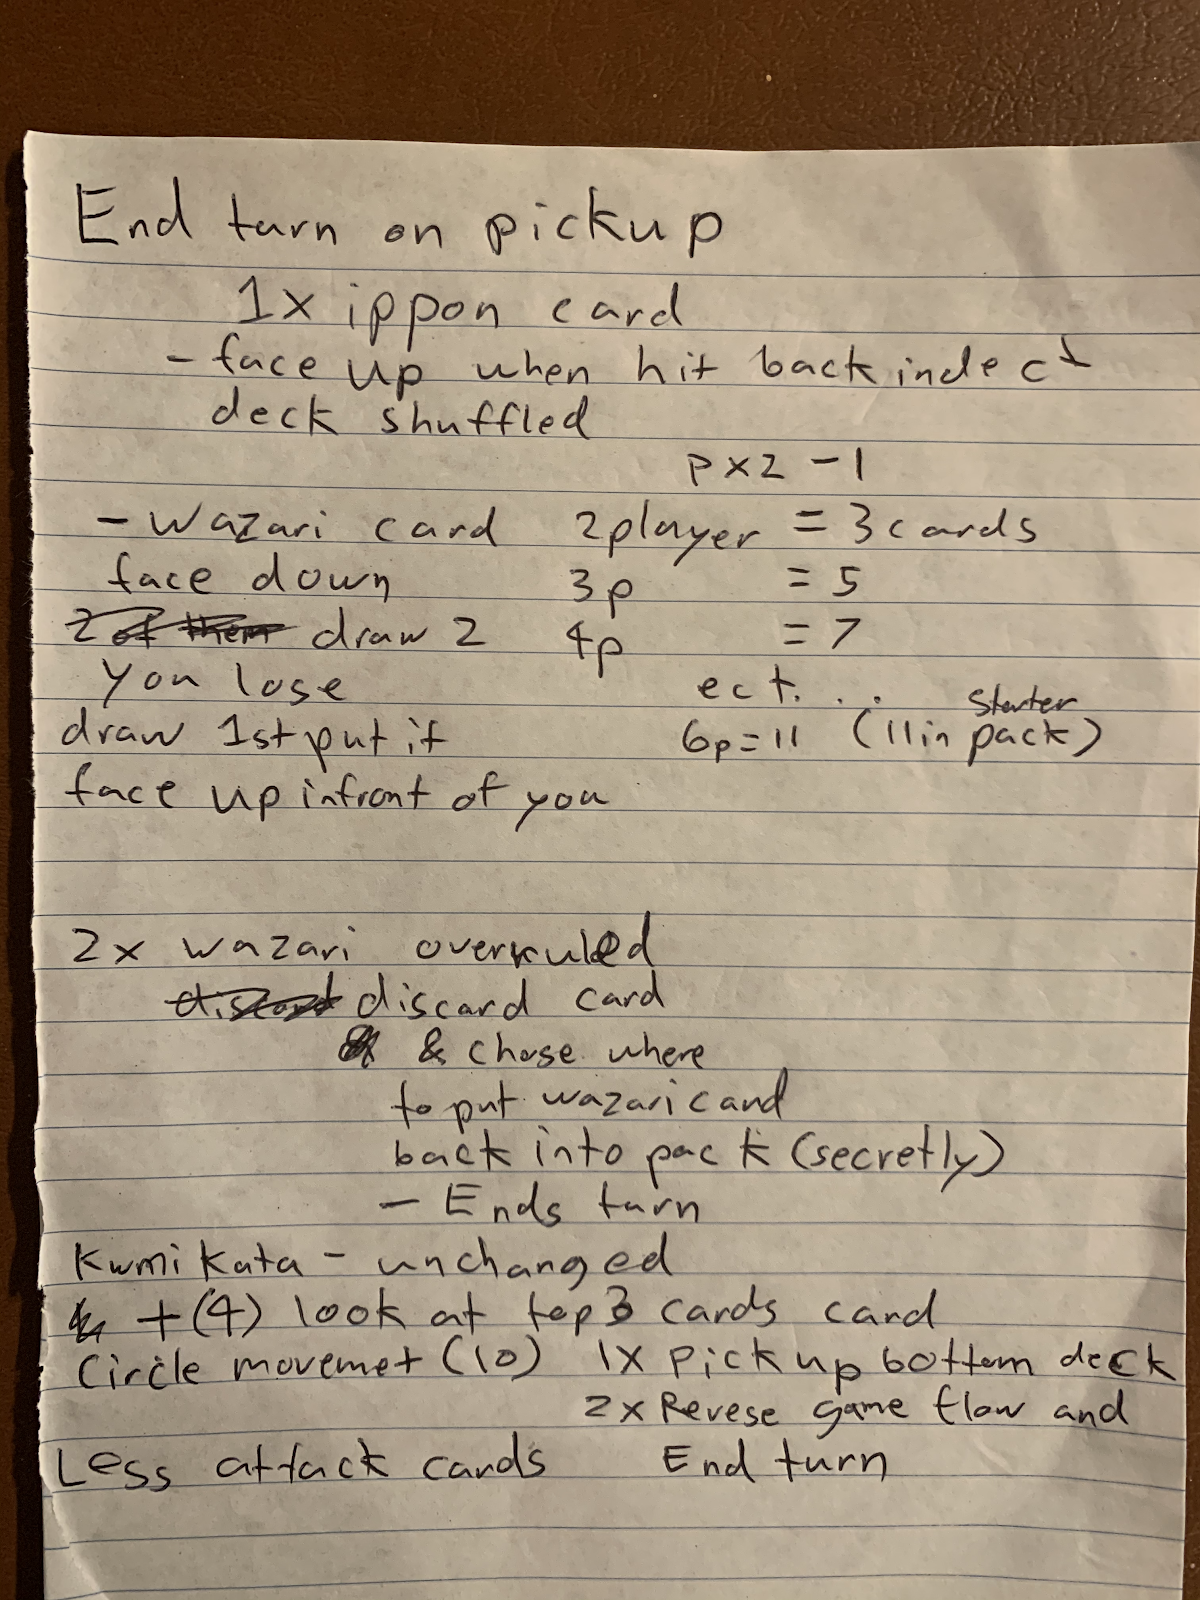 End turn on pickup
1x ippon card
- face up when hit back in deck
deck shuffled
px2 -1
- wazari card 2player = 3 cards
face down 3p = 5
2 of them draw 2 4p = 7
You lose ect. . .
draw 1st put it 6p = 11 (11 in starter pack)
face up infront of you
2x wazari overruled
discard discard card
& chose where
to put wazari card
back into pack (secretly)
- Ends turn
Kumi Kata - unchanged
+ (4) look at top 3 cards card
Circle movemet (10) 1x pick up bottom deck
2x Revese game flow and
Less attack cards End turn